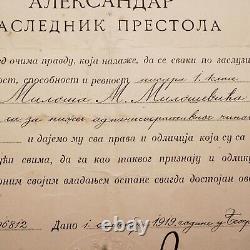 АЛЕКСАНДАР
АСЛЕДНИК ПРЕСТОЛА
ед очима правду, која налаже, да се сваки по заслузи
ост, способности и ревност писара I. класе
Милоша М. Милошевића
за административног чинов
— и дајемо му сва права и одличија која су
ући свима, да га као таквог признају и одлику
оним својим владањем остане свагда достојан ове
6812 Дано 1 1919. године у Београ